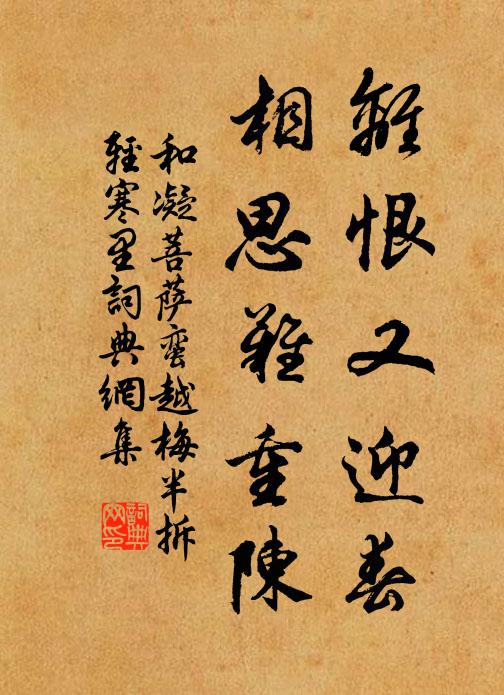 離恨又迎春
相思難重陳
和凝菩薩蠻越梅半拆
輕寒里詞典網集
詞典
网印